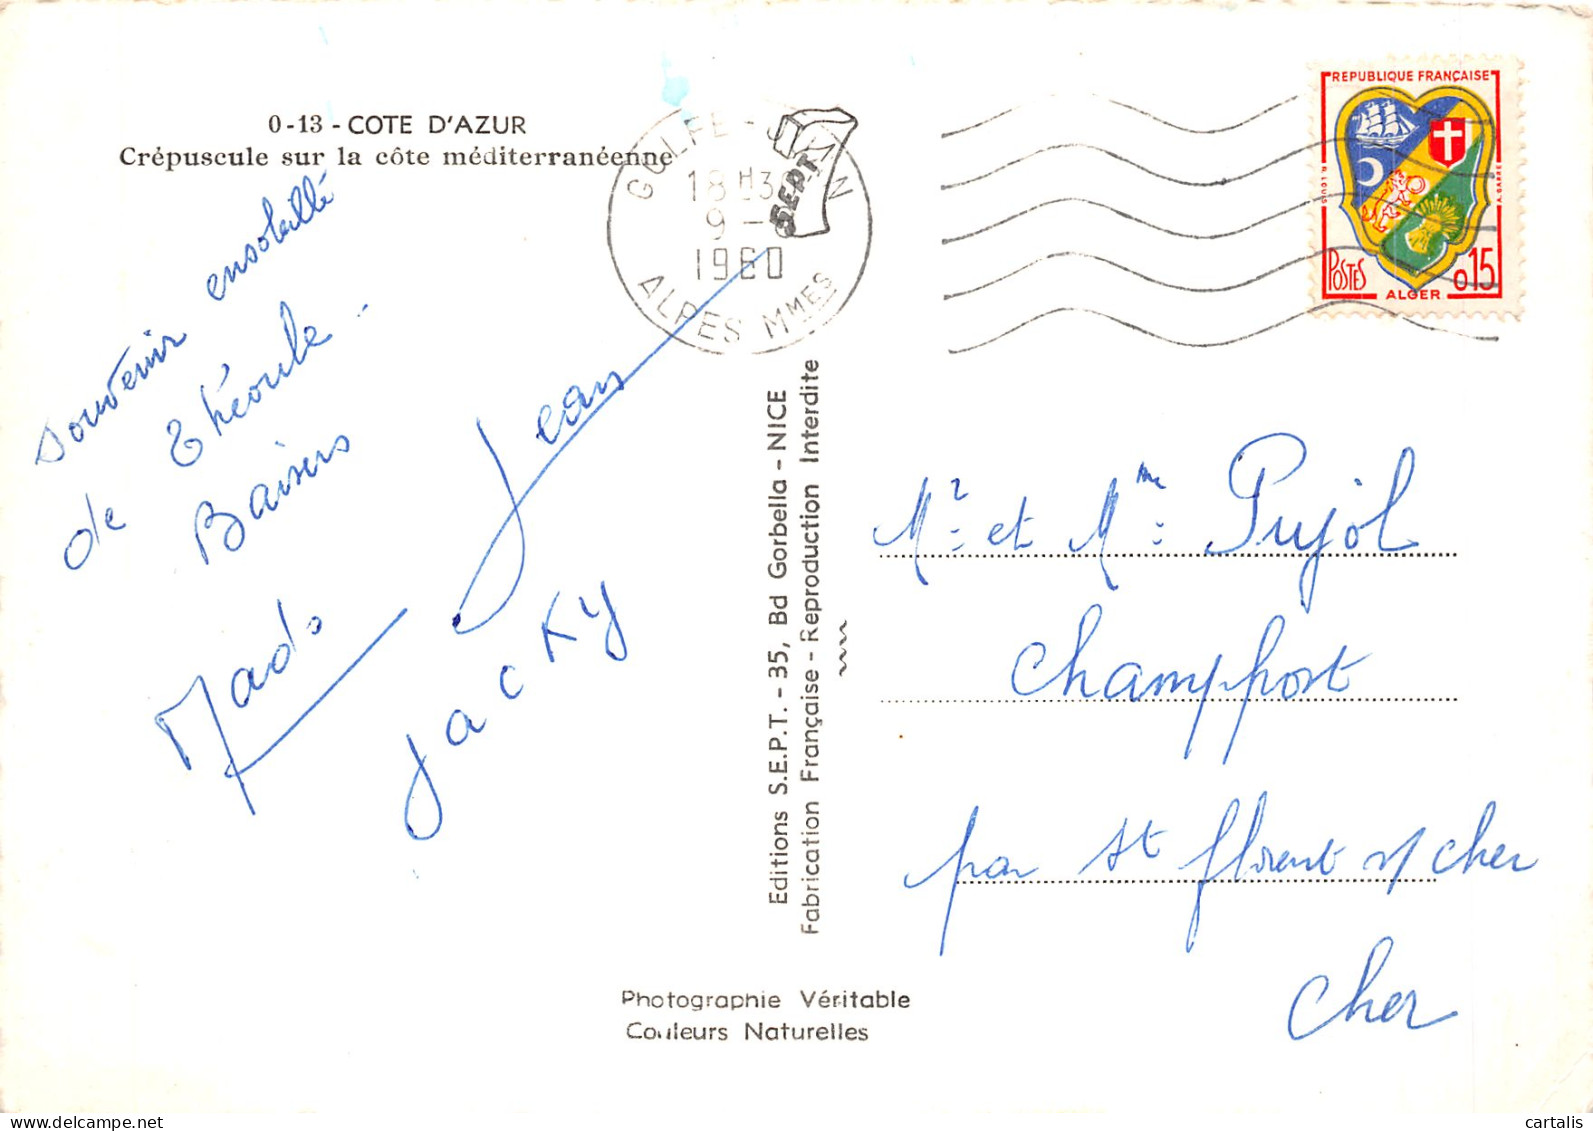 0-13 - COTE D'AZUR
Crépuscule sur la côte méditerranéenne
souvenir ensoleillé
de Théoule -
Baisers
Mado
Jean
Jacky
GOLFE-JUAN
18H30
9 -
1960
ALPES MMES
SEPT
REPUBLIQUE FRANÇAISE
R. LOUIS
A. BARRE
POSTES
ALGER
0,15
Editions S.E.P.T. - 35, Bd Gorbella - NICE
Fabrication Française - Reproduction Interdite
Mr et Mme Pujol
Champfrost
par St florent s/ Cher
Cher
Photographie Véritable
Couleurs Naturelles
cartalis
www.delcampe.net